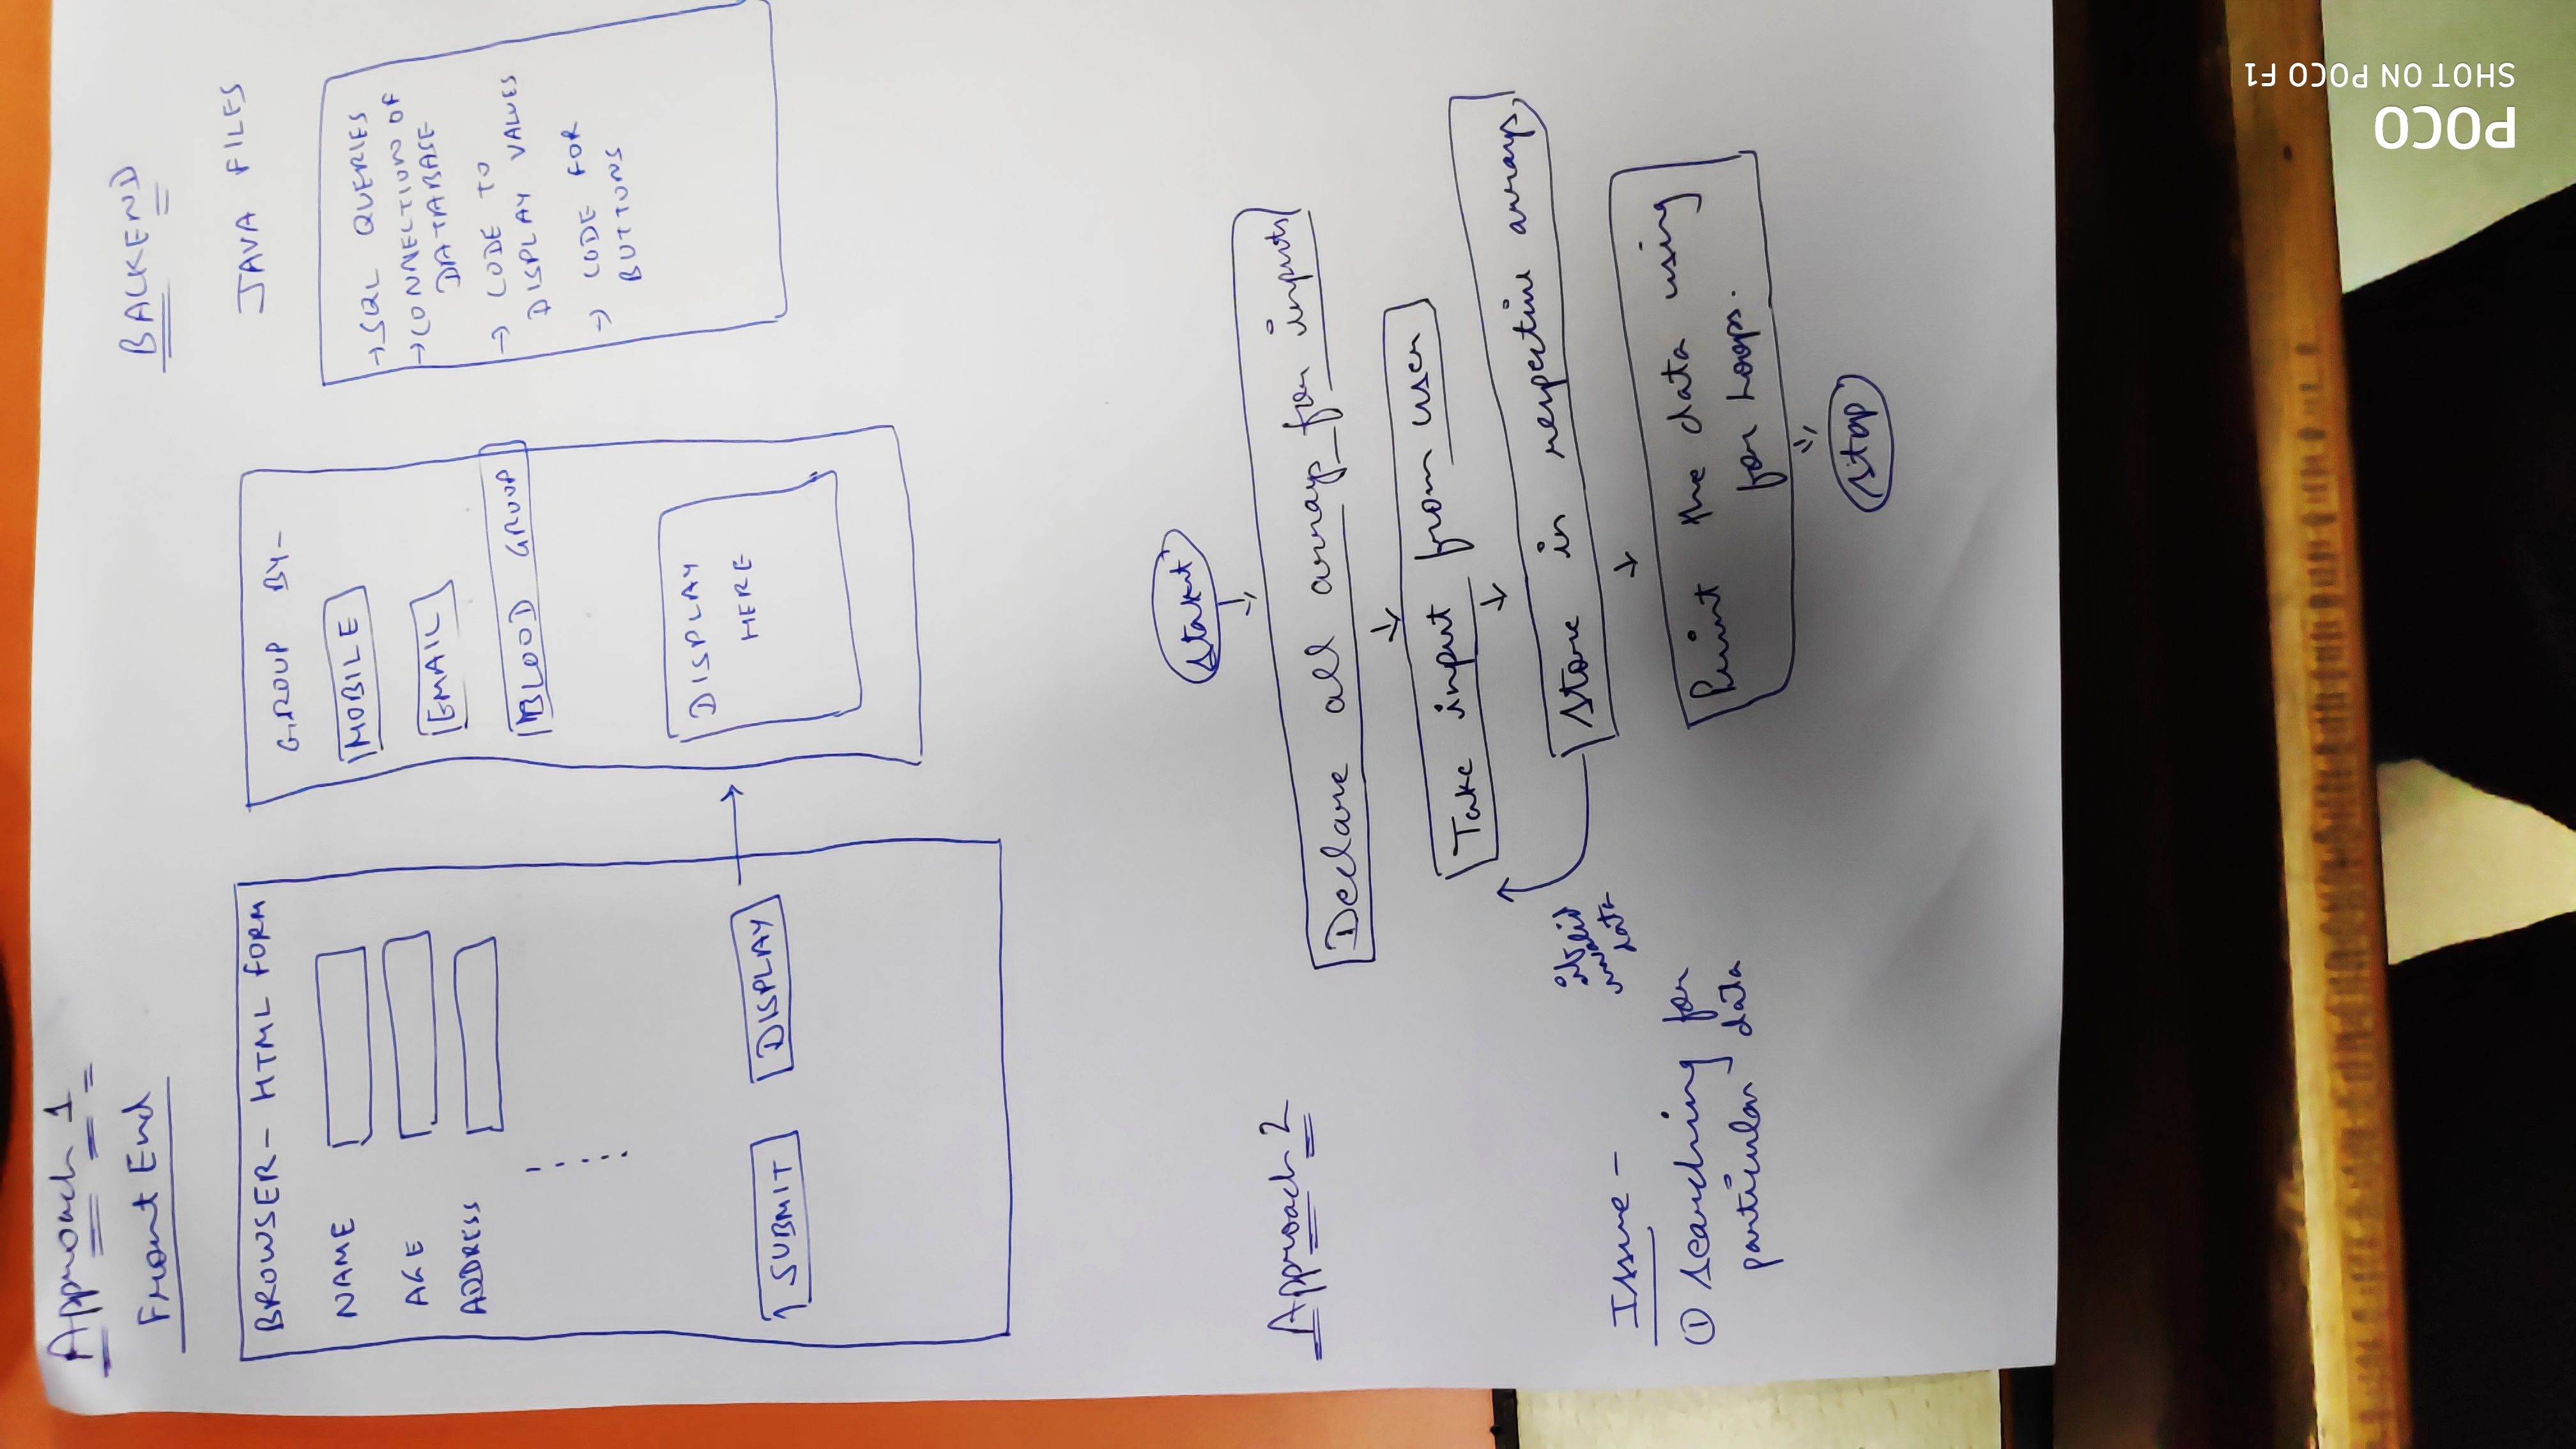 Approach 1
Front End
BROWSER - HTML FORM
NAME
AGE
ADDRESS
.....
SUBMIT
DISPLAY
GROUP BY-
MOBILE
EMAIL
BLOOD GROUP
DISPLAY
HERE
BACKEND
JAVA FILES
→ SQL QUERIES
→ CONNECTION OF
DATABASE
→ CODE TO
DISPLAY VALUES
→ CODE FOR
BUTTONS
Approach 2
Start
Declare all arrays for inputs
Take input from user
if
invalid
data
Store in respective arrays
Print the data using
for Loops.
Stop
Issue -
① Searching for
particular data
POCO
SHOT ON POCO F1